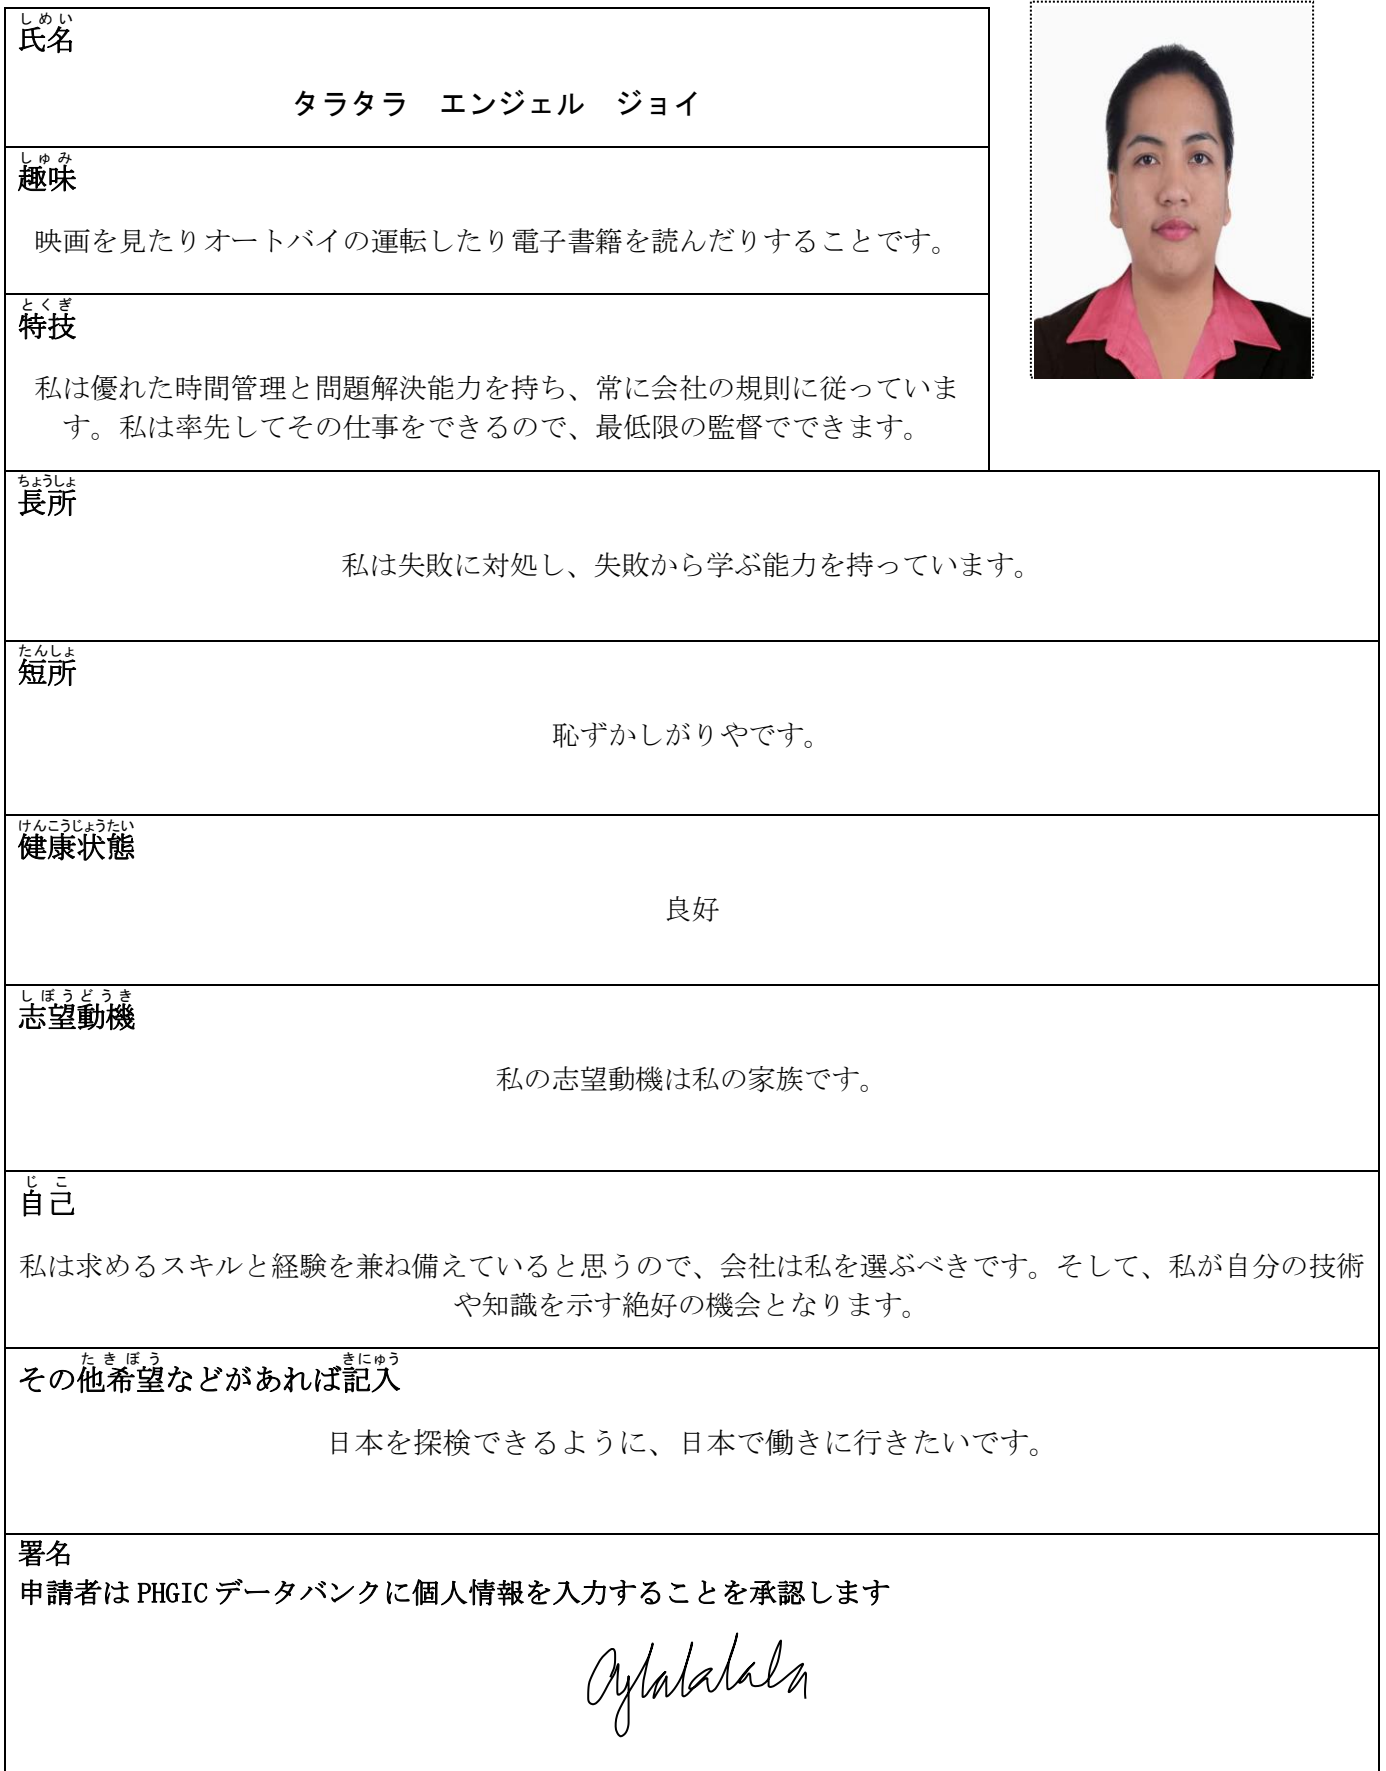 しめい
氏名
タラタラ　エンジェル　ジョイ
しゅみ
趣味
映画を見たりオートバイの運転したり電子書籍を読んだりすることです。
とくぎ
特技
私は優れた時間管理と問題解決能力を持ち、常に会社の規則に従っていま
す。私は率先してその仕事をできるので、最低限の監督でできます。
ちょうしょ
長所
私は失敗に対処し、失敗から学ぶ能力を持っています。
たんしょ
短所
恥ずかしがりやです。
けんこうじょうたい
健康状態
良好
しぼうどうき
志望動機
私の志望動機は私の家族です。
じこ
自己
私は求めるスキルと経験を兼ね備えていると思うので、会社は私を選ぶべきです。そして、私が自分の技術
や知識を示す絶好の機会となります。
たきぼう きにゅう
その他希望などがあれば記入
日本を探検できるように、日本で働きに行きたいです。
署名
申請者は PHGIC データバンクに個人情報を入力することを承認します